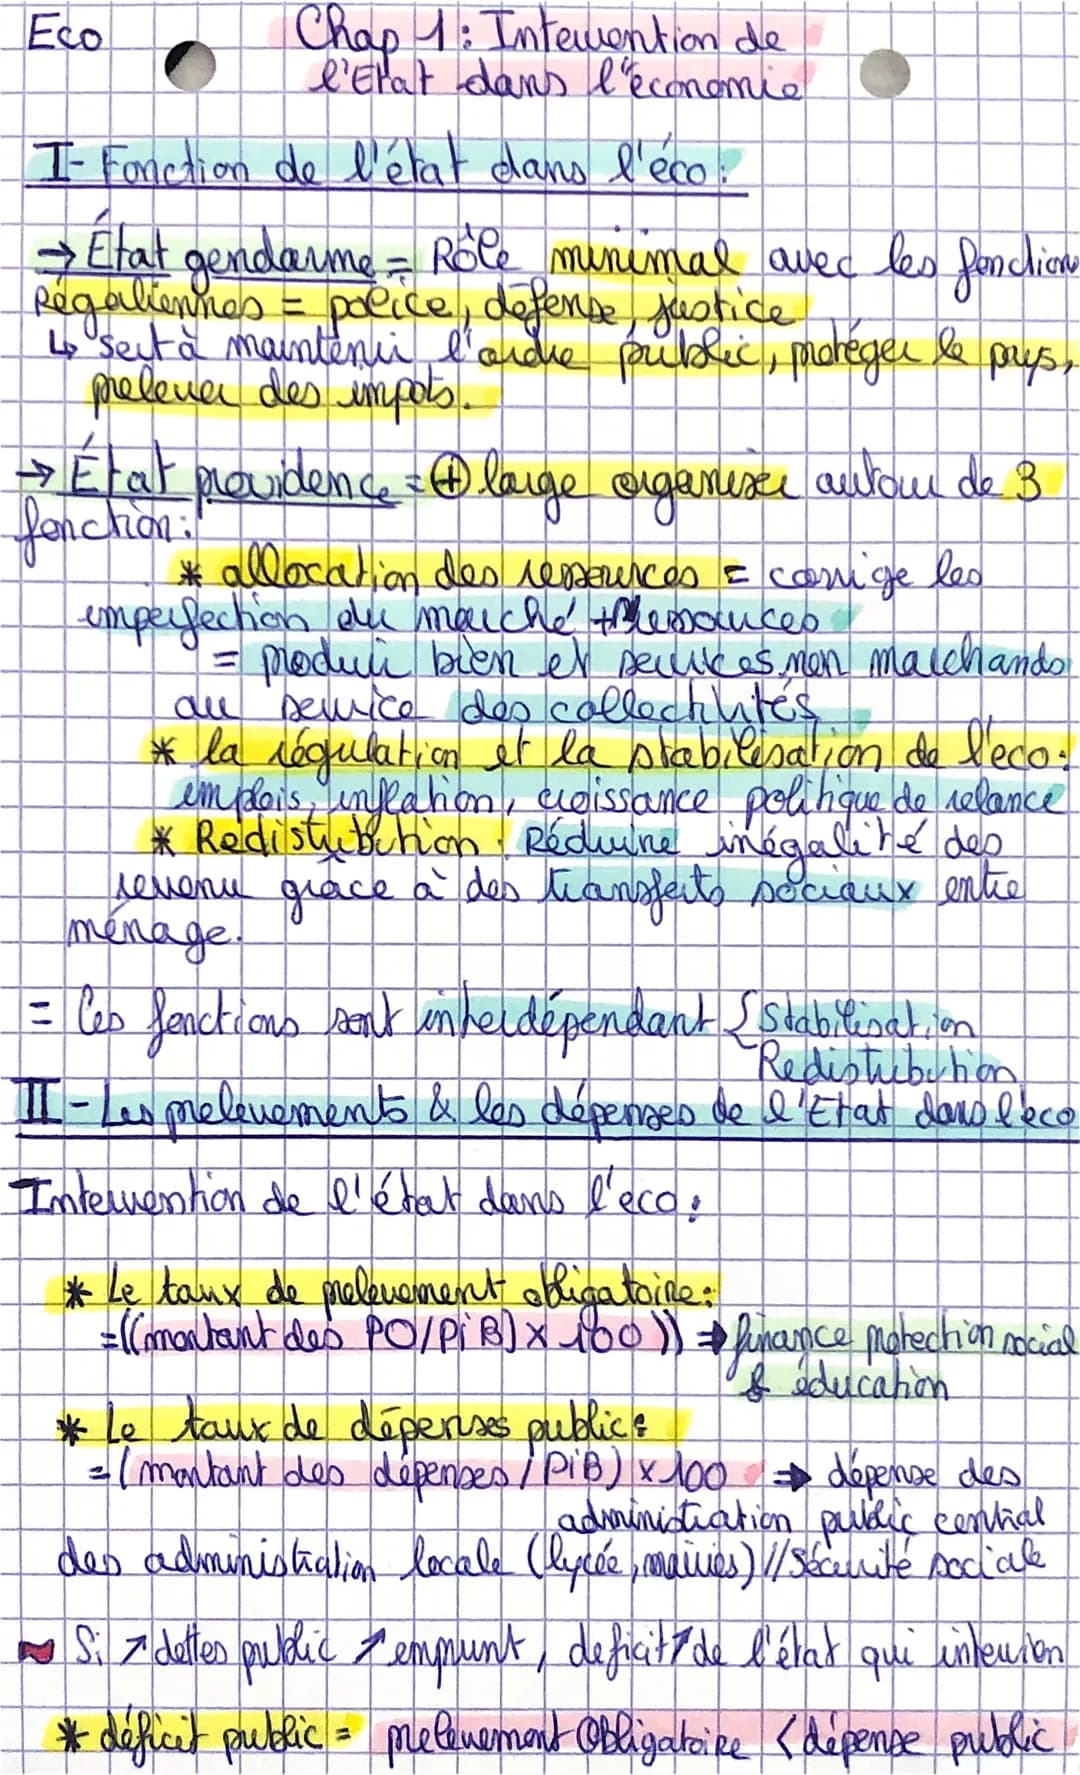 Eco
Chap 1 : Intervention de
l'Etat dans l'économie
I- Fonction de l'état dans l'éco :
→ État gendarme = Rôle minimal avec les fonction
Régaliennes = police, défense, justice
↳ sert à maintenir l'ordre public, protéger le pays,
prelever des impots.
→ État providence = ⊕ large organiser autour de 3
fonction :
* allocation des ressources = corrige les
imperfection du marché + ressources
= produir bien et services non marchands
au service des collectivités
* la régulation et la stabilisation de l'eco :
emplois, inflation, croissance politique de relance
* Redistribution : Réduire inégalité des
revenu grâce à des transferts sociaux entre
ménage.
= Ces fonctions sont interdépendant { Stabilisation
Redistribution
II - Les prelevements & les dépenses de l'Etat dans l'eco
Intervention de l'état dans l'eco :
* Le taux de prelevement obligatoire :
=((montant des PO/PiB) x 100)) → finance protection social
& éducation
* Le taux de dépenses public :
= (montant des dépenses / PiB) x 100 → dépense des
administration public central
des administration locale (lycée, mairies) // Sécurité sociale
~ Si ↗ dettes public ↗ emprunt, deficit ↗ de l'état qui intervien
* déficit public = prelevement Obligatoire < dépense public